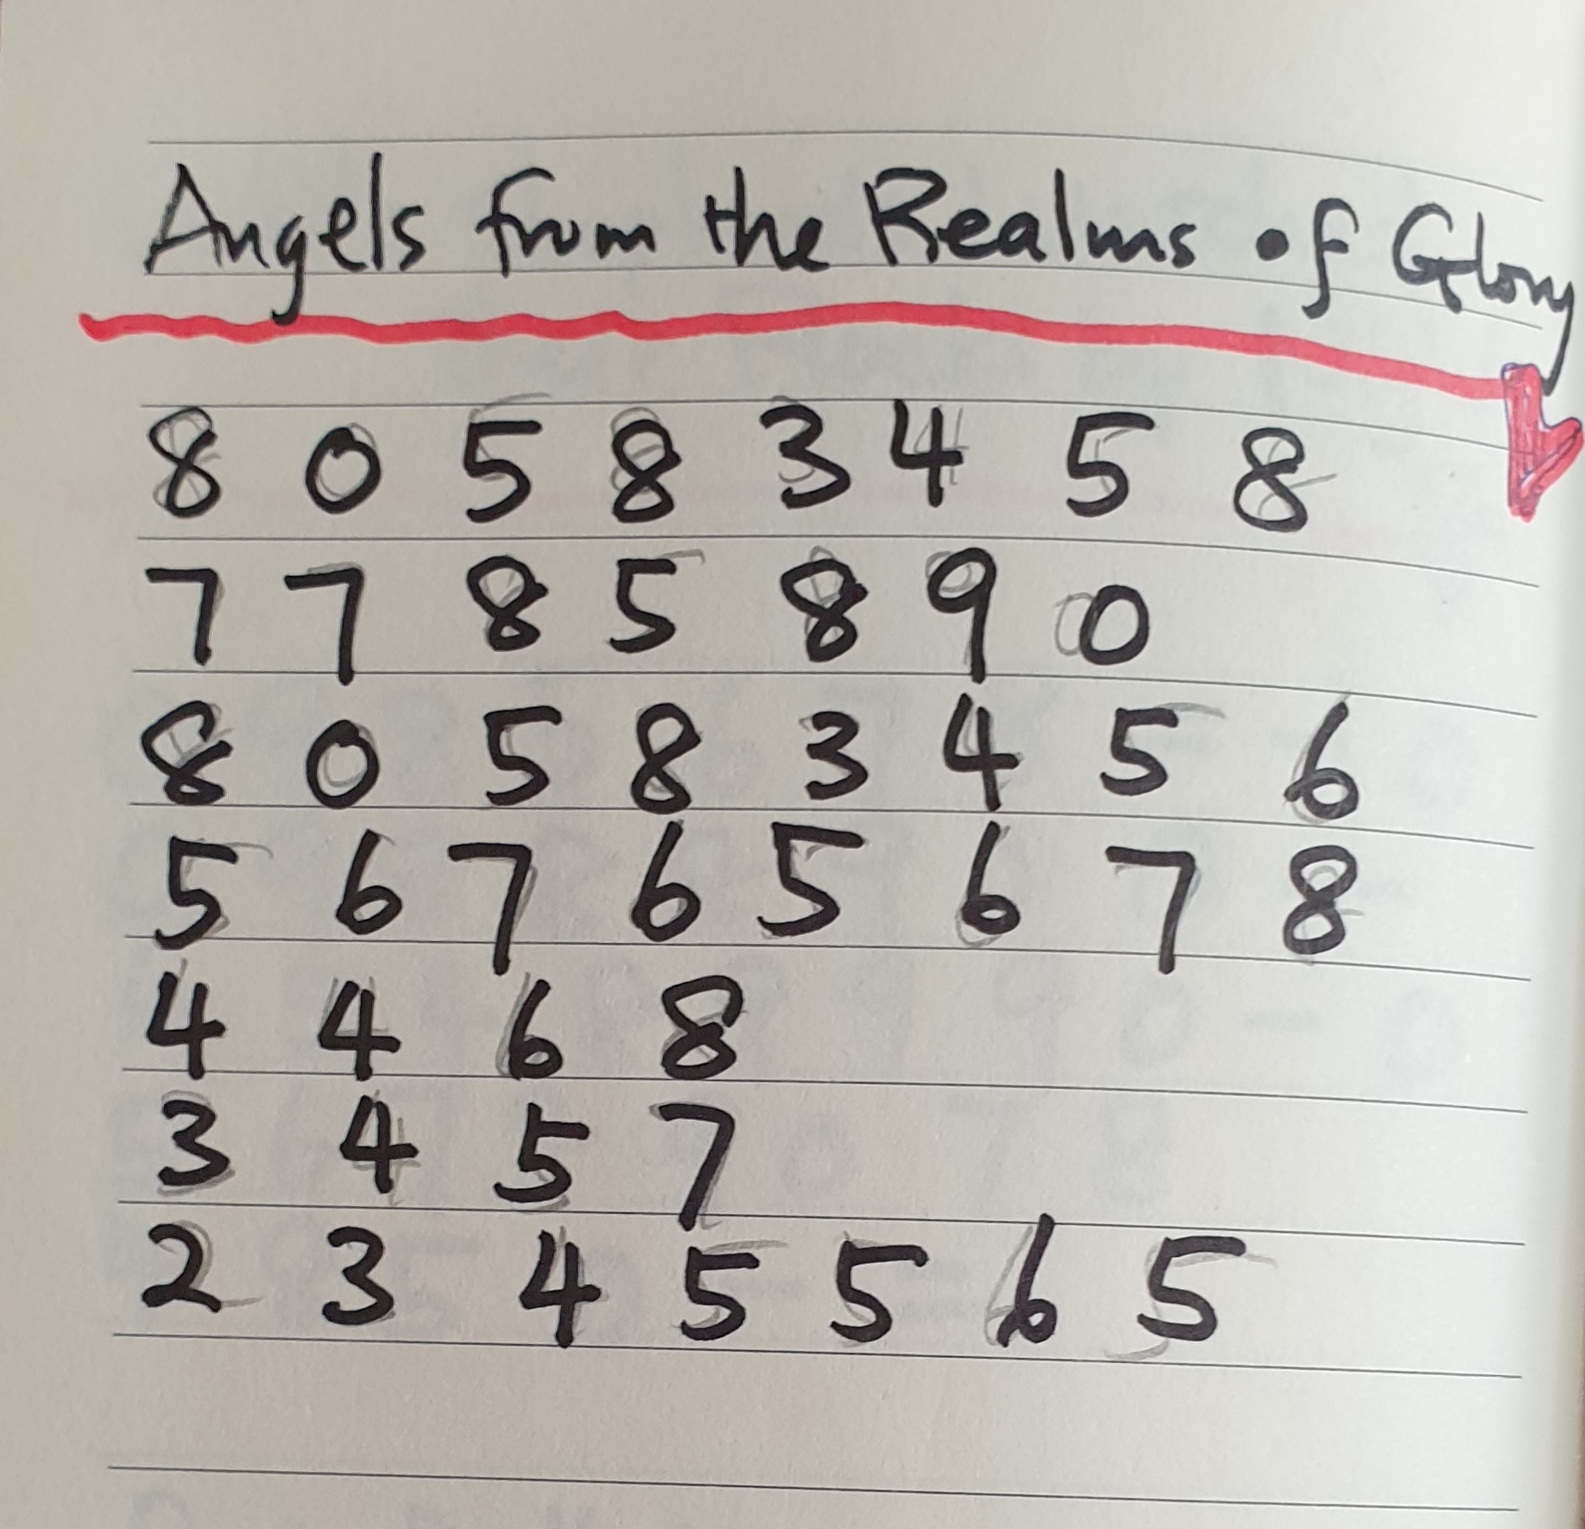 Angels from the Realms of Glory
8 0 5 8 3 4 5 8
7 7 8 5 8 9 0
8 0 5 8 3 4 5 6
5 6 7 6 5 6 7 8
4 4 6 8
3 4 5 7
2 3 4 5 5 6 5